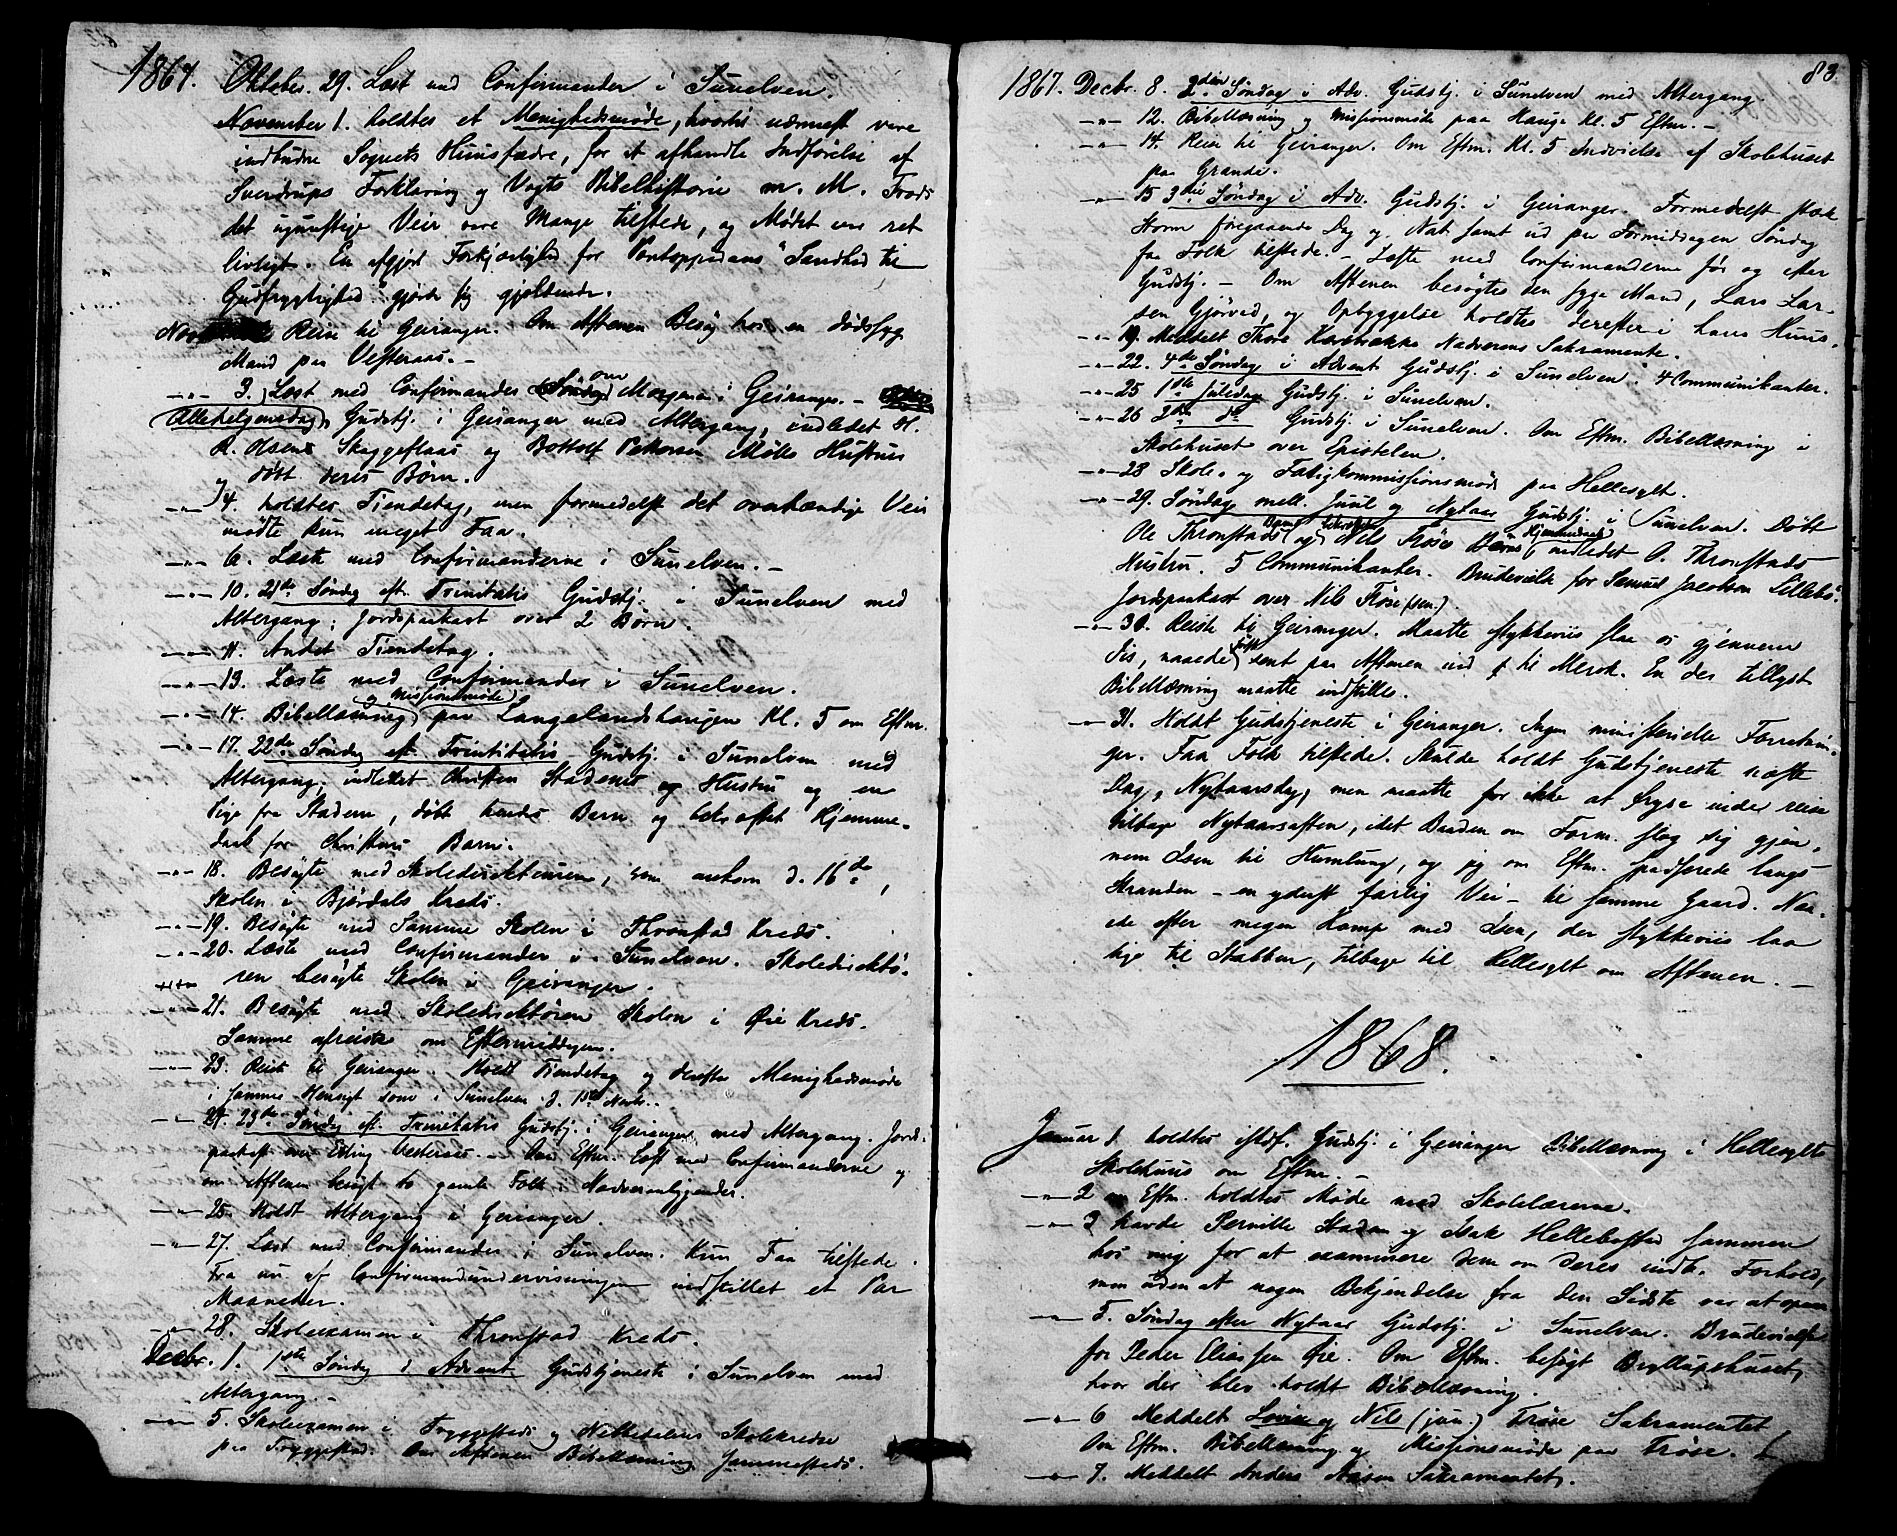 1867. Oktober. 29. Læst med Confirmander i Sunelven.
November 1. holdtes et Menighedsmøde, hvortil nærmest vare
indbudne Sognets Huusfædre, for at afhandle Indførelse af
Sverdrups Forklaring og Vogts Bibelhistorie m. M. Trods
det ugunstige Veir vare Mange tilstede, og Mødet var ret
livligt. En afgjort Forkjærlighed for Pontoppidans "Sandhed til
Gudfrygtighed" gjorde sig gjeldende.
Reise til Geiranger. Om Aftenen Besøg hos en dødssyg
Mand paa Vesteraas. -
-"- 3. Læst med Confirmander om Morgenen i Geiranger. -
Allehelgensdag Gudstj. i Geiranger med Altergang, indledet
Skaggeflaas og Bottolf Pettersen Mølls Hustruer
og døbt deres Børn.
-"- 4. holdtes Tiendetag, men formedelst det overhændige Veir
mødte kun meget Faa.
-"- 6. Læste med Confirmanderne i Sunelven. -
-"- 10. 21de Søndag eft. Trinitatis Gudstj. i Sunelven med
Altergang; Jordspaakast over 2 Børn.
-"- 11. Andet Tiendetag.
-"- 13. Læste med Confirmander i Sunelven.
og Missionsmøde
-"- 14. Bibellæsning paa Langelandshaugen Kl. 5 om Eftm.
-"- 17. 22de Søndag eft. Trinitatis Gudstj. i Sunelven med
Altergang, indledet Christen Stadens og Hustru og en
Pige fra Staden, døbt hendes Barn og bekræftet Hjemme-
daab for Christens Barn.
-"- 18. Besøgte med Skoledirekteuren, som ankom d. 16de,
Skolen i Bjørdals Kreds.
-"- 19. Besøgte med Samme Skolen i Thronstad Kreds.
-"- 20. Læste med Confirmander i Sunelven. Skoledirektø-
ren besøgte Skolen i Geiranger.
-"- 21. Besøgte med Skoledirektøren Skolen i Øie Kreds.
Samme afreiste om Eftermiddagen.
-"- 23. Reist til Geiranger. Holdt Tiendetag og derefter Menighedsmøde
i samme Hensigt som i Sunelven d. 1ste Novbr.
-"- 24. 23de Søndag eft. Trinitatis Gudstj. i Geiranger med Altergang. Jord-
paakast over Erling Vesteraas. - Om Eftm. Læst med Confirmanderne og
om Aftenen besøgt to gamle Folk
-"- 25. Holdt Altergang i Geiranger.
-"- 27. Læst med Confirmander i Sunelven. Kun Faa tilstede.
Fra nu af Confirmandundervisningen indstillet et Par
Maaneder.
-"- 28. Skoleexamen i Thronstad Kreds.
Decbr. 1. 1ste Søndag i Advent Gudstjeneste i Sunelven med
Altergang. -
-"- 5. Skoleexamen i Tryggestads og Nebbedalens Skolekredse
paa Tryggestad. Om Aftenen Bibellæsning sammesteds.
83.
1867. Decbr. 8. 2den Søndag i Adv. Gudstj. i Sunelven med Altergang.
-"- 12. Bibellæsning og Missionsmøde paa Hauge Kl. 5 Eftm. -
-"- 14. Reise til Geiranger. Om Eftm. Kl. 5 Indvielse af Skolehuset
paa Grande.
-"- 15 3die Søndag i Adv. Gudstj. i Geiranger. Formedelst stærk
Storm foregaaende Dag og Nat samt ud paa Formiddagen Søndag
faa Folk tilstede. - Læste med Confirmanderne før og efter
Gudstj. - Om Aftenen besøgtes den syge Mand, Lars Lar-
sen Gjørvad, og Opbyggelse holdtes derefter i hans Huus.
-"- 19. Meddelt Thore Nadverens Sakramente.
-"- 22. 4de Søndag i Advent Gudstj. i Sunelven. 4 Communikanter.
-"- 25 1ste Juledag Gudstj. i Sunelven.
-"- 26 2den do Gudstj. i Sunelven. Om Eftm. Bibellæsning i
Skolehuset over Epistelen.
-"- 28 Skole- og Fattigkommissionsmøde paa Hellesylt.
-"- 29. Søndag mell. Juul og Nytaar Gudstj. i Sunelven. Døbt
Ole Thronstads Barn og bekræftet Nils Frøses Børns Hjemmedaab, indledet O. Thronstads
Hustru. 5 Communikanter. Brudevielse for Samuel Jacobsen Lillebø.
Jordspaakast over Nils Frøse (sen.)
-"- 30. Reiste til Geiranger. Maatte stykkeviis slaa os gjennem
Iis, naaede først sent paa Aftenen ind til Merok. En der tillyst
Bibellæsning maatte indstilles.
-"- 31. Holdt Gudstjeneste i Geiranger. Ingen ministerielle Forretnin-
ger. Faa Folk tilstede. Skulde holdt Gudstjeneste næste
Dag, Nytaarsdag, men maatte for ikke at fryse inde reise
tilbage Nytaarsaften, idet Baaden om Form. slog sig gjen-
nem Isen til Humlung, og jeg om Eftm. spadserede langs
Stranden - en yderst farlig Vei - til samme Gaard. Naa-
ede efter megen Kamp med Isen, der stykkeviis laa
lige til Stabben, tilbage til Hellesylt om Aftenen. -
1868.
Januar 1. holdtes istf. Gudstj. i Geiranger Bibellæsning i Hellesylts
Skolehuus om Eftm. -
-"- 2 om Eftm. holdtes Møde med Skolelærerne.
-"- 3 havde Pernille Staden og Isak Hellebostad sammen
hos mig for at examinere dem om deres indb. Forhold,
men uden at nogen Bekjendelse fra den Sidste var at opnaa
-"- 5. Søndag efter Nytaar Gudstj. i Sunelven. Brudevielse
for Peder Eliassen Øie. Om Eftm. besøgt Bryllupshuset,
hvor der blev holdt Bibellæsning.
-"- 6 Meddelt Lovise og Nils (jun.) Frøse Sakramentet
Om Eftm. Bibellæsning og Missionsmøde paa Frøse.
-"- 7. Meddelt Anders Sakramentet.